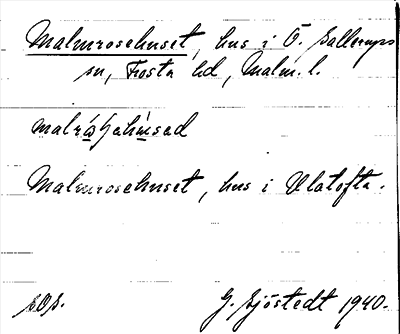 Malmrosehuset, hus i Ö. Sallerups
sn, Frosta hd, Malm. l.
Malmrosehuset, hus i Vlatofta.
sOs.
G. Sjöstedt 1940.